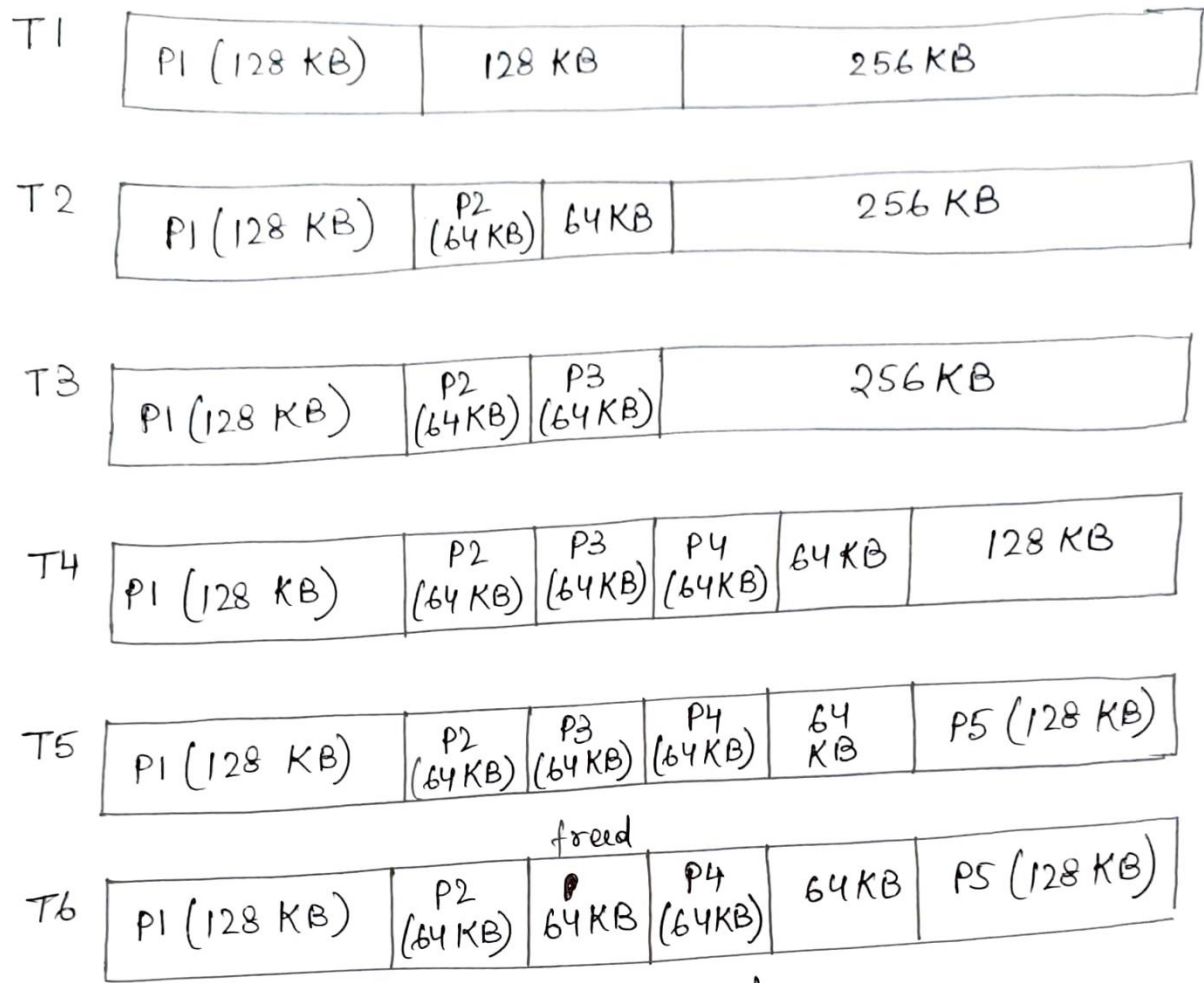 T1 P1 (128 KB) 128 KB 256 KB
T2 P1 (128 KB) P2 (64 KB) 64 KB 256 KB
T3 P1 (128 KB) P2 (64 KB) P3 (64 KB) 256 KB
T4 P1 (128 KB) P2 (64 KB) P3 (64 KB) P4 (64 KB) 64 KB 128 KB
T5 P1 (128 KB) P2 (64 KB) P3 (64 KB) P4 (64 KB) 64 KB P5 (128 KB)
freed
T6 P1 (128 KB) P2 (64 KB) 64 KB P4 (64 KB) 64 KB P5 (128 KB)